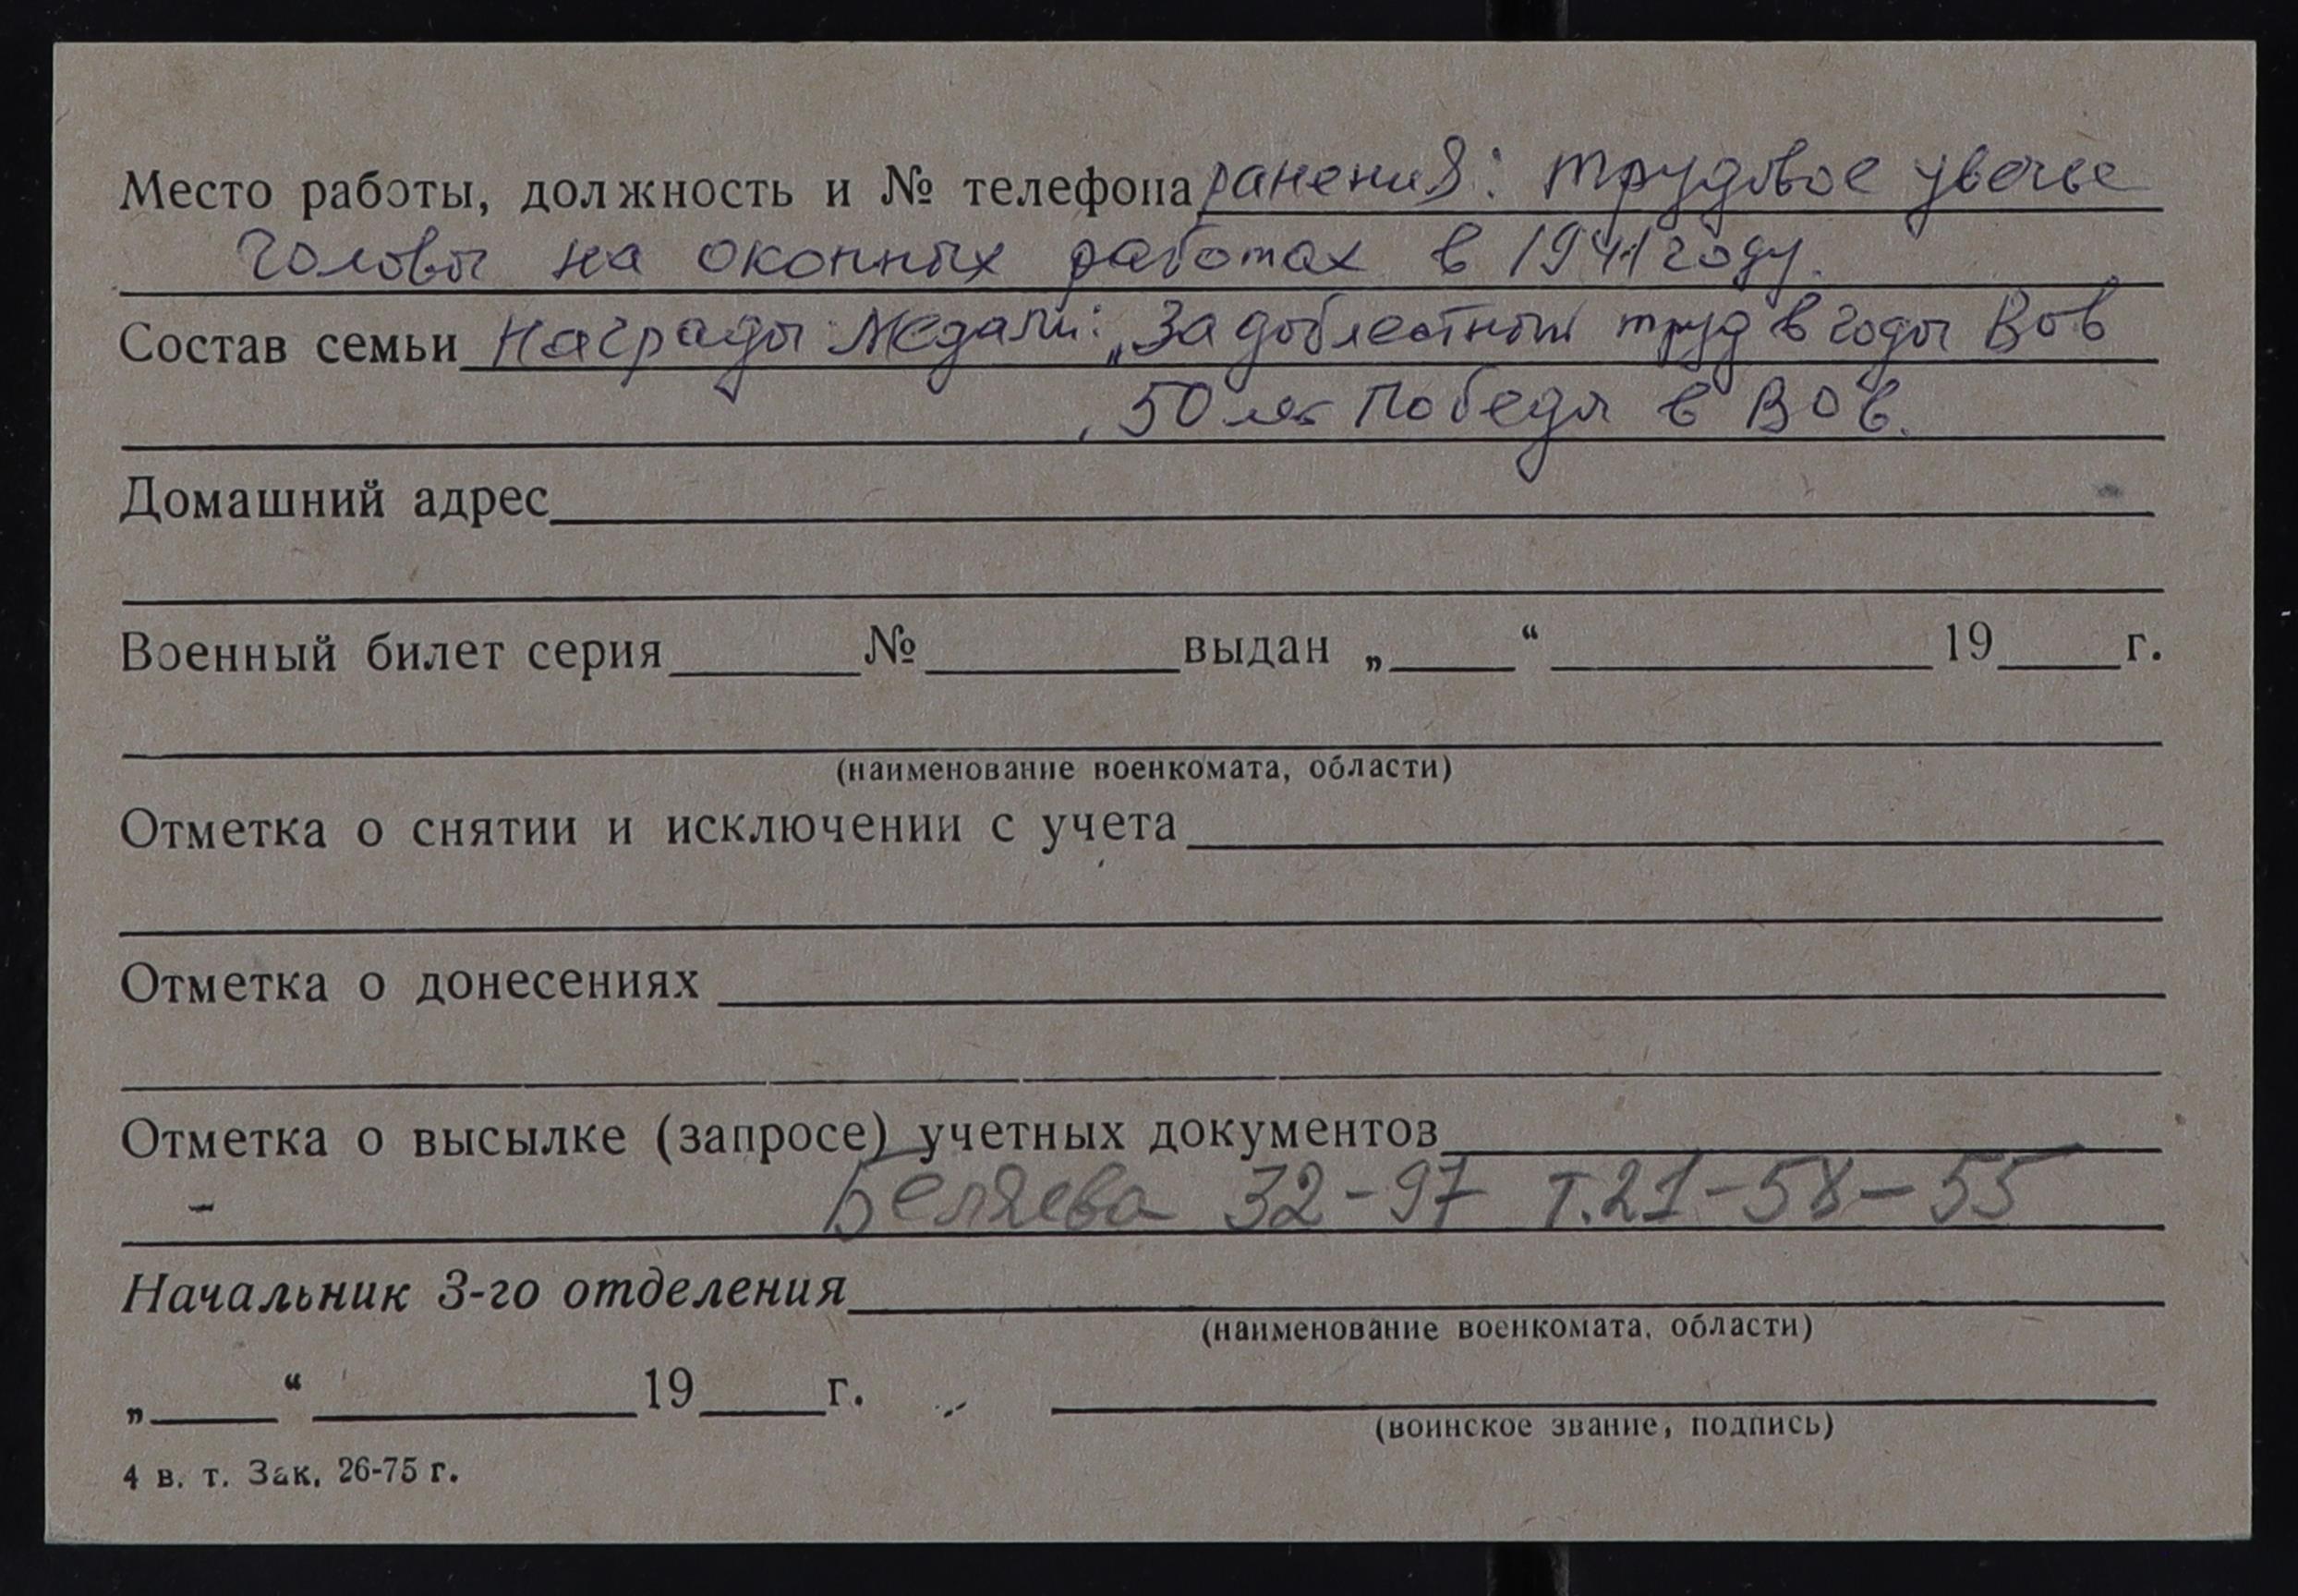 Место работы, должность и № телефона ранения: трудовое увечье
головы на окопных работах в 1941 году.
Состав семьи Награды Медали: „За доблестный труд в годы Вов
, 50 лет Победы в ВОв.
Домашний адрес
Военный билет серия № выдан „ “ 19 г.
(наименование военкомата, области)
Отметка о снятии и исключении с учета
Отметка о донесениях
Отметка о высылке (запросе) учетных документов
Беляева 32-97 т. 21-58-55
Начальник 3-го отделения
(наименование военкомата, области)
„ “ 19 г.
(воинское звание, подпись)
4 в. т. Зак, 26-75 г.